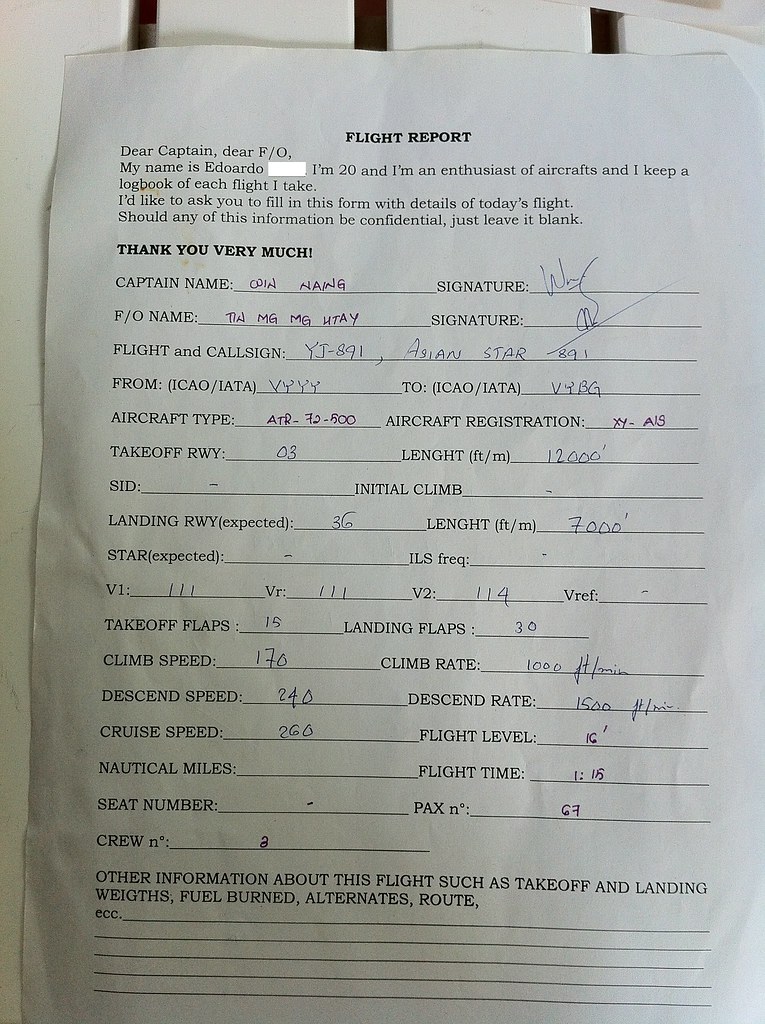 FLIGHT REPORT
Dear Captain, dear F/O,
My name is Edoardo I'm 20 and I'm an enthusiast of aircrafts and I keep a
logbook of each flight I take.
I'd like to ask you to fill in this form with details of today's flight.
Should any of this information be confidential, just leave it blank.
THANK YOU VERY MUCH!
CAPTAIN NAME: WIN NAING SIGNATURE:
F/O NAME: TIN MG MG HTAY SIGNATURE:
FLIGHT and CALLSIGN: YJ-891, ASIAN STAR -891
FROM: (ICAO/IATA) VYYY TO: (ICAO/IATA) VYBG
AIRCRAFT TYPE: ATR-72-500 AIRCRAFT REGISTRATION: XY-AIS
TAKEOFF RWY: 03 LENGHT (ft/m) 12000'
SID: - INITIAL CLIMB -
LANDING RWY(expected): 36 LENGHT (ft/m) 7000'
STAR(expected): - ILS freq: -
V1: 111 Vr: 111 V2: 114 Vref: -
TAKEOFF FLAPS : 15 LANDING FLAPS : 30
CLIMB SPEED: 170 CLIMB RATE: 1000 ft/min
DESCEND SPEED: 240 DESCEND RATE: 1500 ft/min
CRUISE SPEED: 260 FLIGHT LEVEL: 16'
NAUTICAL MILES: FLIGHT TIME: 1:15
SEAT NUMBER: - PAX n°: 67
CREW n°:
OTHER INFORMATION ABOUT THIS FLIGHT SUCH AS TAKEOFF AND LANDING
WEIGTHS, FUEL BURNED, ALTERNATES, ROUTE,
ecc.